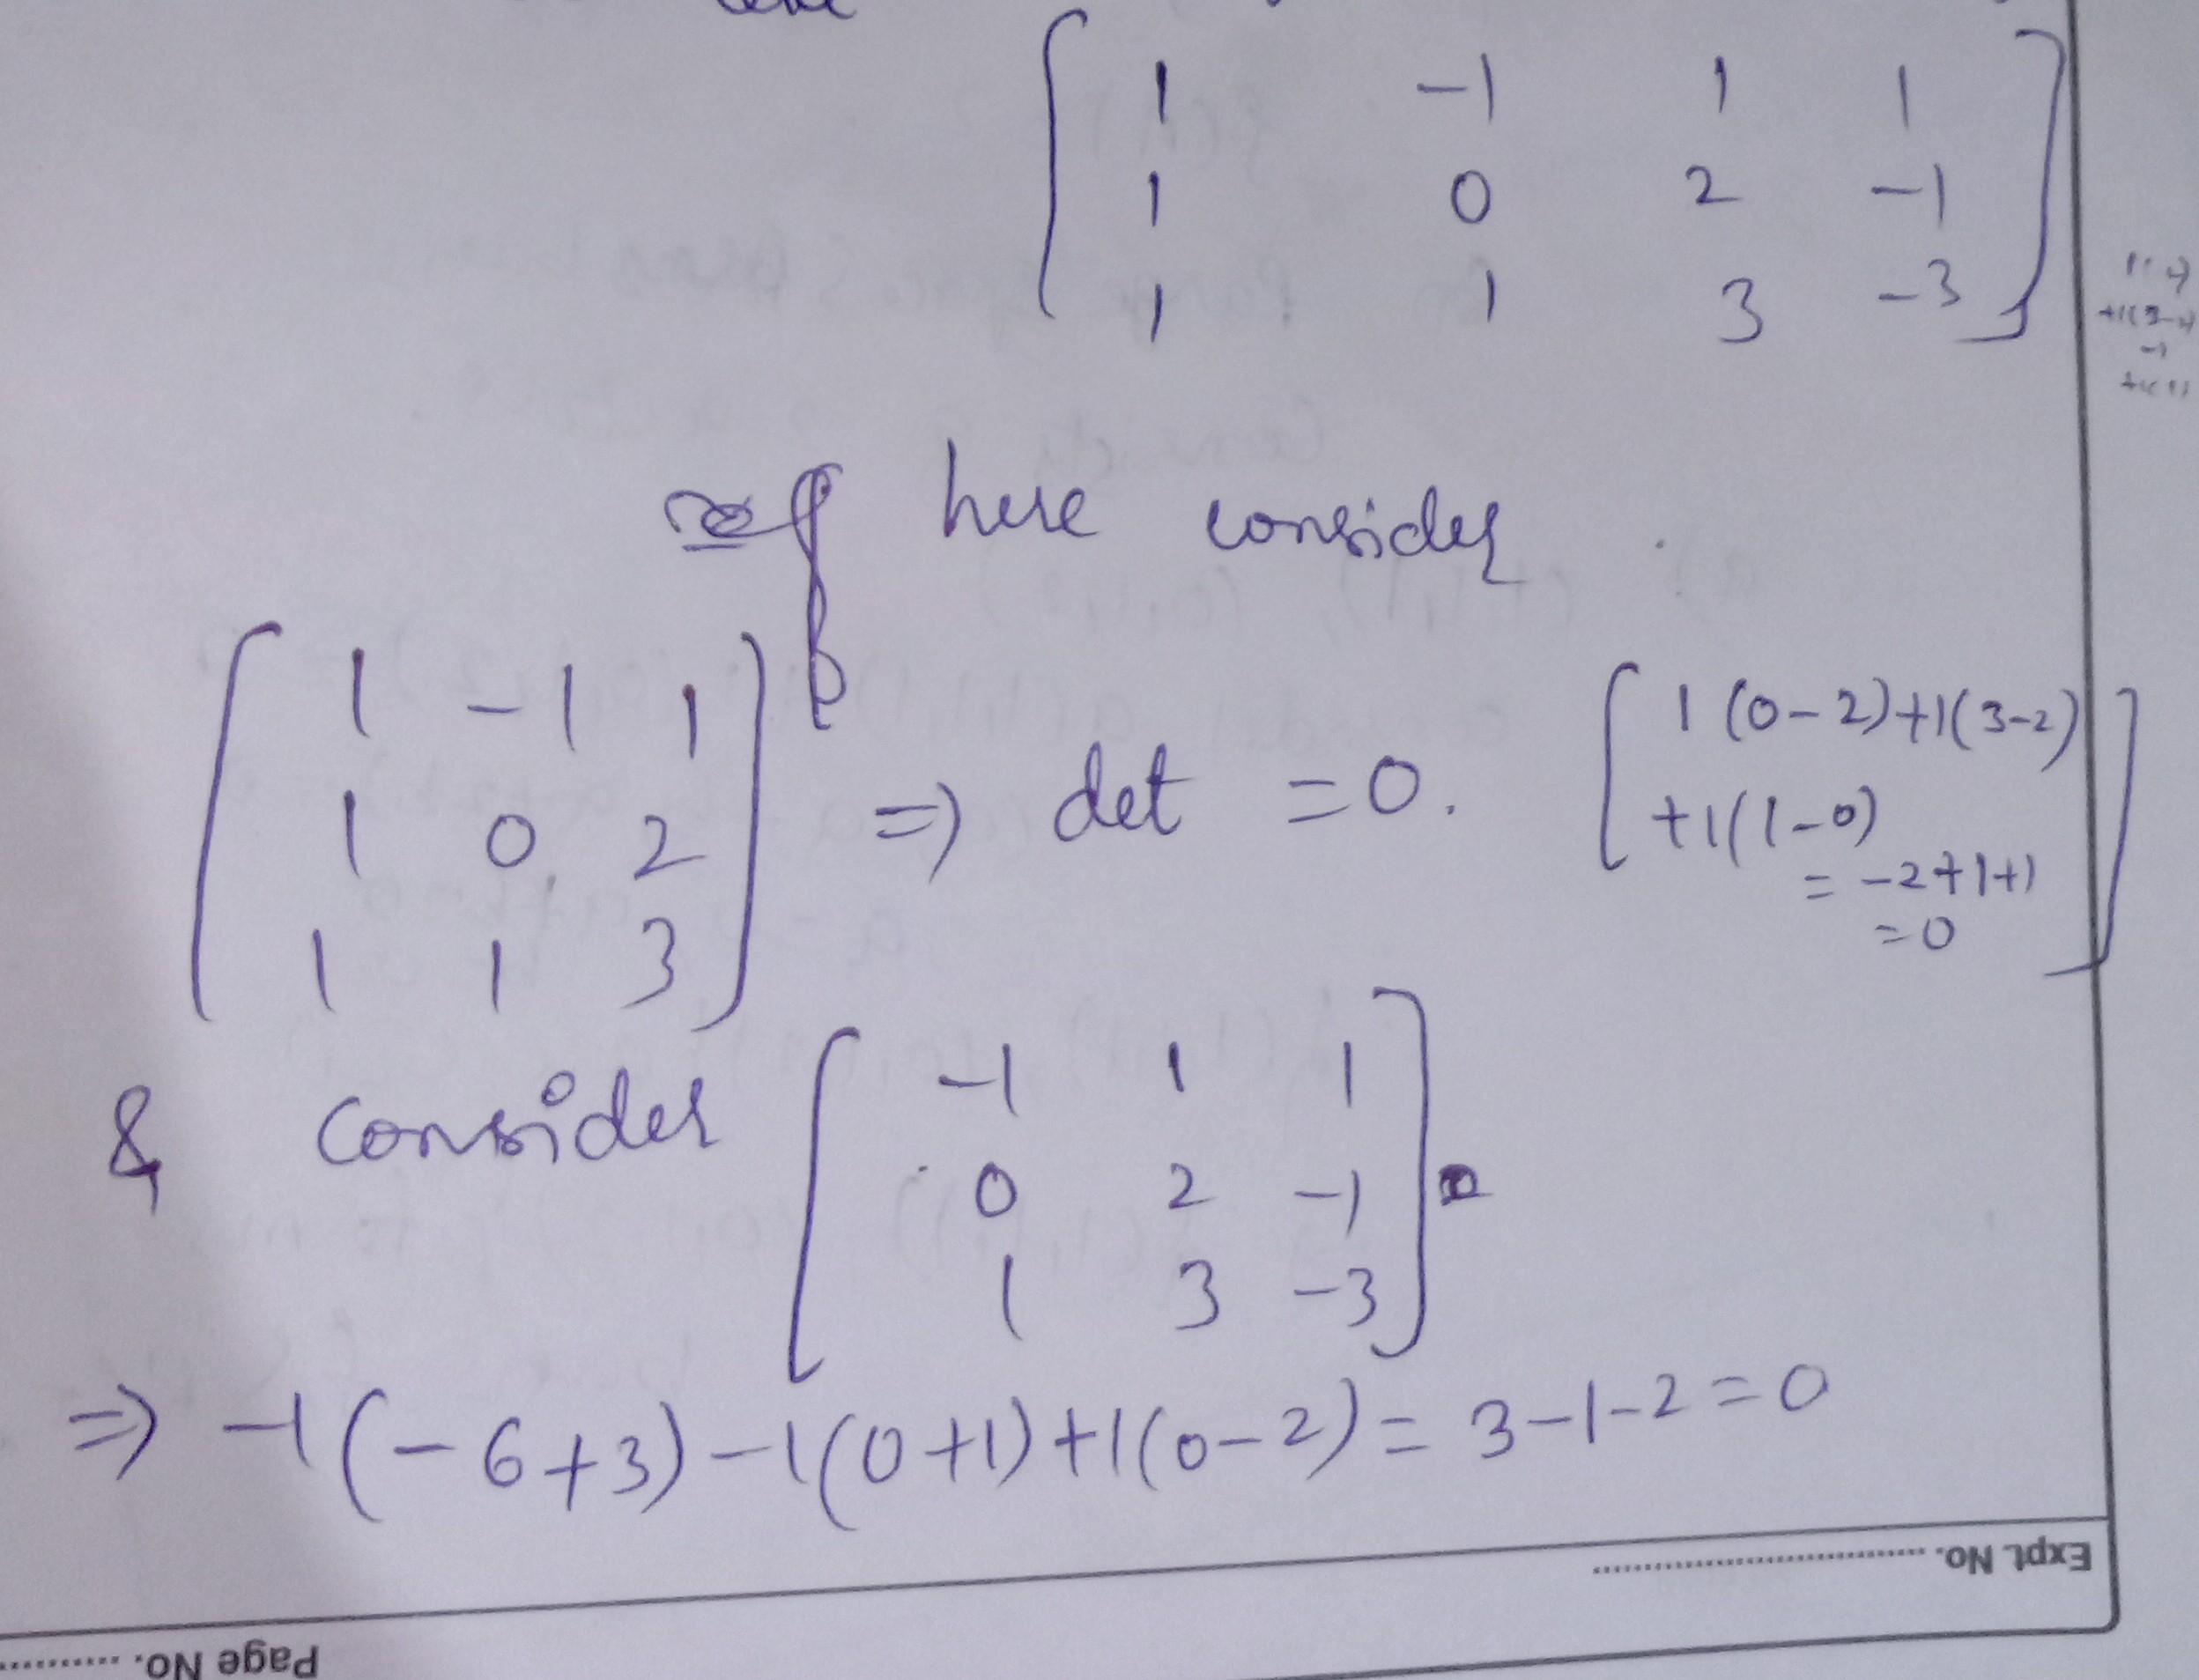 [ 1 -1 1 1
1 0 2 -1
1 1 3 -3 ]
here consider
[ 1 -1 1
1 0 2
1 1 3 ] => det = 0. [ 1(0-2)+1(3-2)
+1(1-0)
= -2+1+1
= 0 ]
& consider [ -1 1 1
0 2 -1
1 3 -3 ]
=> -1(-6+3)-1(0+1)+1(0-2) = 3-1-2 = 0
Expt. No. ........................
Page No. ............